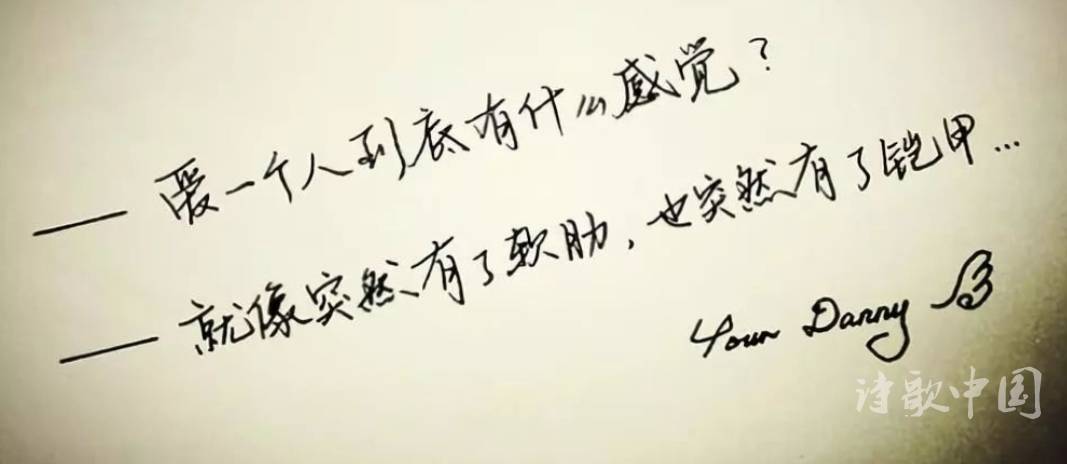 —— 爱一个人到底有什么感觉？
—— 就像突然有了软肋，也突然有了铠甲...
Your Danny B
诗歌中国